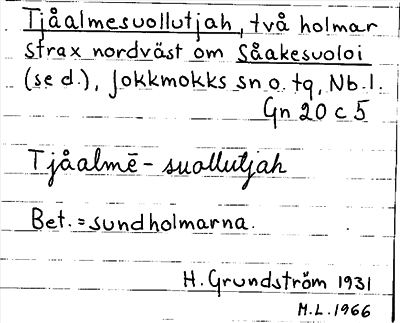 Tjåalmesuollutjah, två holmar
strax nordväst om Såakesuoloi
(se d.), Jokkmokks sn o. tg, Nb. l.
Gn 20 c 5
Tjåalmē-suollutjah
Bet. = sundholmarna.
H. Grundström 1931
M.L. 1966